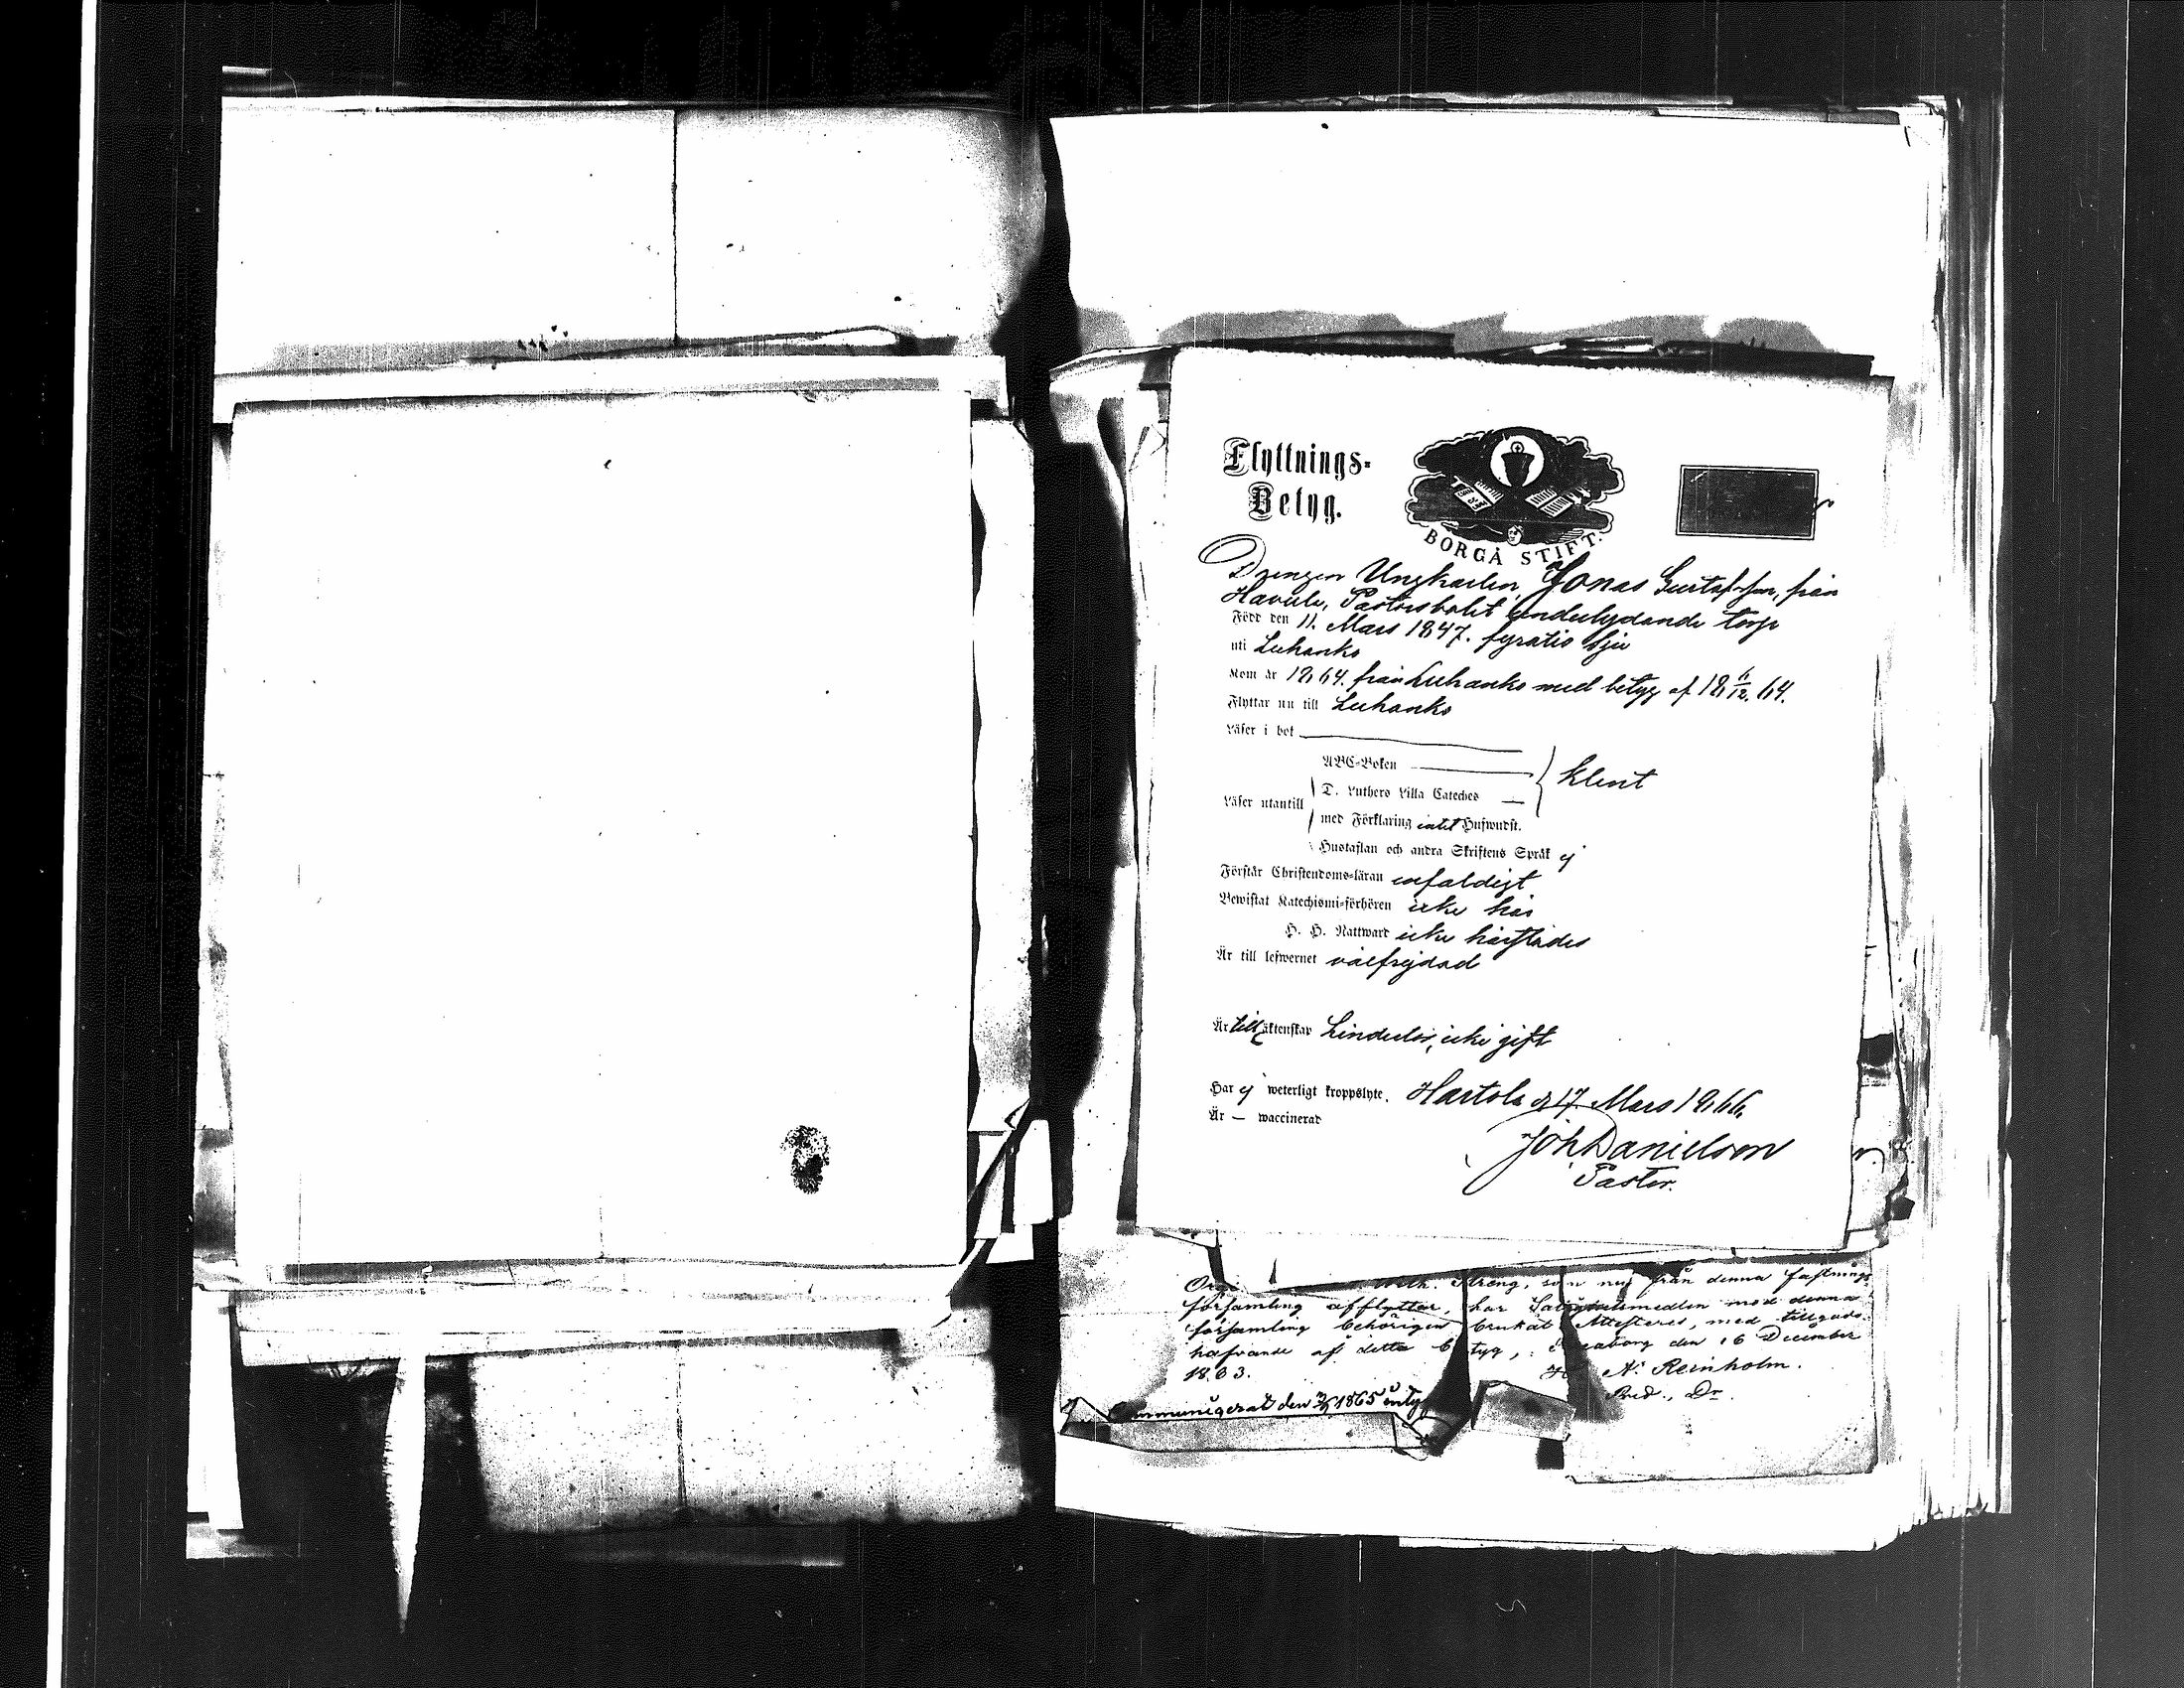 Flyttnings-
Betyg.
BORGÅ STIFT.
Drengen Ungkarlen, Jonas Gustafsson, från
Havula, Pastorsbolet underlydande torp
Född den 11. Mars 1847. fyratio sju
uti Luhanko
Kom år 1864. från Luhanko med betyg af 18 6/12. 64.
Flyttar nu till Luhanko
Läser i bok
ABC-Boken
klent
Läser utantill D. Luthers Lilla Cateches
med Förklaring intet Hufwudst.
Hustaflan och andra Skriftens Språk ej
Förstår Christendoms-läran enfaldigt
Bewistat Katechismi-förhören icke här
H. H. Nattward icke härstädes
Är till lefwernet välfrejdad
Är till äktenskap hinderlös, icke gift
Har ej weterligt kroppslyte. Hartola d 17. Mars 1866.
Är — waccinerad
Joh Danielson
Pastor.
Streng, som nu från denna fästnings
församling afflyttar, har Salighetsmedlen med denna
församling behörigen brukat Attesteras, med tillgodo-
hafvande af detta betyg, Sveaborg den 16 December
1863.
H. A. Reinholm.
Pred., Dr.
Communicerat den 2/4 1865 intyg